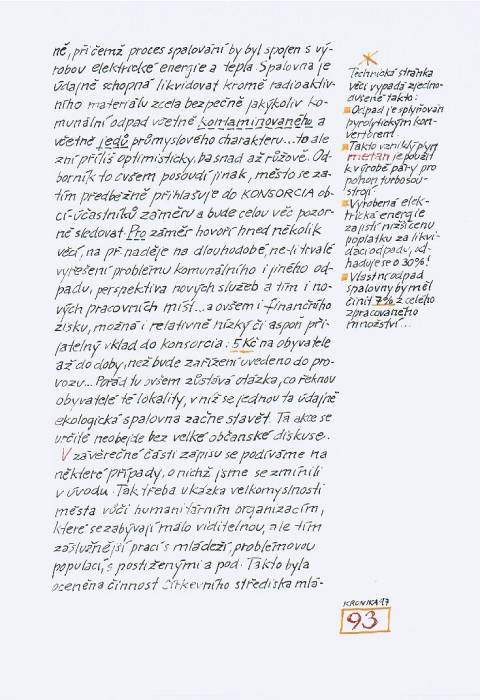 ně, při čemž proces spalování by byl spojen s vý-
robou elektrické energie a tepla. Spalovna je
údajně schopná likvidovat kromě radioaktiv-
ního materiálu zcela bezpečně jakýkoliv ko-
munální odpad včetně kontaminovaného a
včetně jedů průmyslového charakteru...to ale
zní příliš optimisticky, ba snad až růžově. Od-
borníkto ovšem posoudí jinak, město se za-
tím předběžně přihlašuje do KONSORCIA ob-
cí-účastníků záměru a bude celou věc pozor-
ně sledovat. Pro záměr hovoří hned několik
věcí, na př. naděje na dlouhodobé, ne-li trvalé
vyřešení problému komunálního i jiného od-
padu, perspektiva nových služeb a tím i no-
vých pracovních míst...a ovšem i finančního
zisku, možná i relativně nízký či aspoň při-
jatelný vklad do konsorcia: 5 Kč na obyvatele
až do doby, než bude zařízení uvedeno do pro-
vozu... Pořád tu ovšem zůstává otázka, co řeknou
obyvatelé té lokality, v níž se jednou ta údajně
ekologická spalovna začne stavět. Ta akce se
určitě neobejde bez velké občanské diskuse..
V závěrečné části zápisu se podíváme na
některé případy, o nichž jsme se zmínili
v úvodu. Tak třeba ukázka velkomyslnosti
města vůči humanitárním organizacím,
které se zabývají málo viditelnou, ale tím
záslužnější prací s mládeží problémovou
populací, s postiženými a pod. Takto byla
oceněna činnost Církevního střediska mlá-
Technická stránka
věci vypadá zjedno-
dušeně takto:
Odpad je splyňován
pyrolytickým kon-
vertorem
Takto vzniklý plyn
metan je použit
k výrobě páry pro
pohon turbosou-
strojí
Vyrobená elek-
trická energie
zajistí nižší cenu
poplatku za likvi-
daci odpadu, od-
haduje se o 30%!
Vlastní odpad
spalovny by měl
činit 7% z celého
zpracovaného
množství...
KRONIKA 97
93